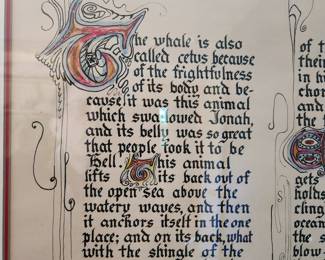 The whale is also
called cetus because
of the frightfulness
of its body and be-
cause it was this animal
which swallowed Jonah,
and its belly was so great
that people took it to be
Hell. This animal
lifts its back out of
the open sea above the
watery waves, and then
it anchors itself in the one
place; and on its back, what
with the shingle of the
of t
their
in hi
chor
and
is d
gets
holds
cling
ocean
the s
blow